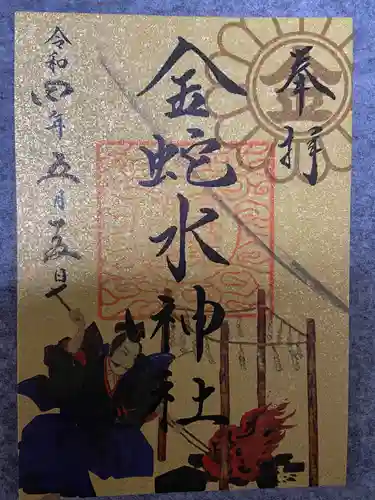 奉拝
金蛇水神社
令和四年五月十五日